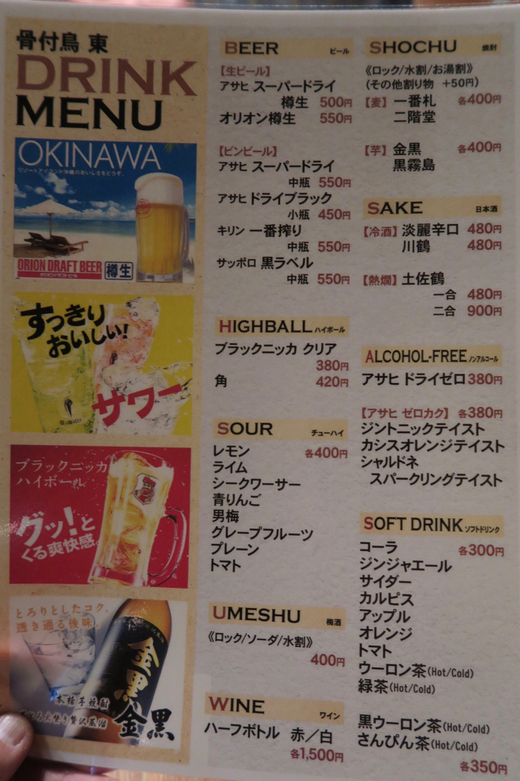 骨付鳥 東
DRINK
MENU
OKINAWA
ORION DRAFT BEER 樽生
すっきり
おいしい!
サワー
ブラックニッカ
ハイボール
グッ!と
くる爽快感。
とろりとしたコク、
透き通る後味。
本格芋焼酎
金黒
金黒
BEER ビール
【生ビール】
アサヒ スーパードライ
樽生 500円
オリオン樽生 550円
【ビンビール】
アサヒ スーパードライ
中瓶 550円
アサヒ ドライブラック
小瓶 450円
キリン 一番搾り
中瓶 550円
サッポロ 黒ラベル
中瓶 550円
HIGHBALL ハイボール
ブラックニッカ クリア
380円
角 420円
SOUR チューハイ
レモン 各400円
ライム
シークワーサー
青りんご
男梅
グレープフルーツ
プレーン
トマト
UMESHU 梅酒
《ロック/ソーダ/水割》
400円
WINE ワイン
ハーフボトル 赤/白
各1,500円
SHOCHU 焼酎
《ロック/水割/お湯割》
(その他割り物 +50円)
【麦】 一番札 各400円
二階堂
【芋】 金黒 各400円
黒霧島
SAKE 日本酒
【冷酒】 淡麗辛口 480円
川鶴 480円
【熱燗】 土佐鶴
一合 480円
二合 900円
ALCOHOL-FREE ノンアルコール
アサヒ ドライゼロ 380円
【アサヒ ゼロカク】 各380円
ジントニックテイスト
カシスオレンジテイスト
シャルドネ
スパークリングテイスト
SOFT DRINK ソフトドリンク
コーラ 各300円
ジンジャエール
サイダー
カルピス
アップル
オレンジ
トマト
ウーロン茶(Hot/Cold)
緑茶(Hot/Cold)
黒ウーロン茶(Hot/Cold)
さんぴん茶(Hot/Cold)
各350円